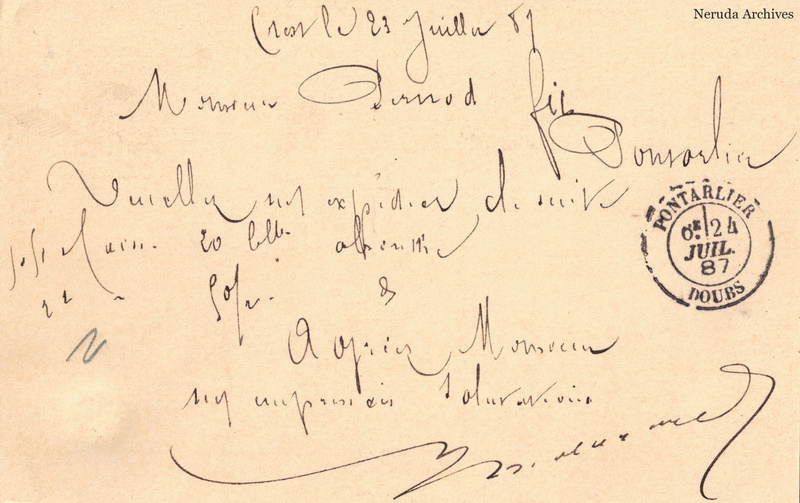 Neruda Archives
Crest le 23 Juillet 87
Monsieur Pernod fils
Pontarlier
Veuillez nous expédier de suite
caisse 20 absinthe
Agréez Monsieur
nos empressées Salutations
PONTARLIER
6E 24
JUIL.
87
DOUBS